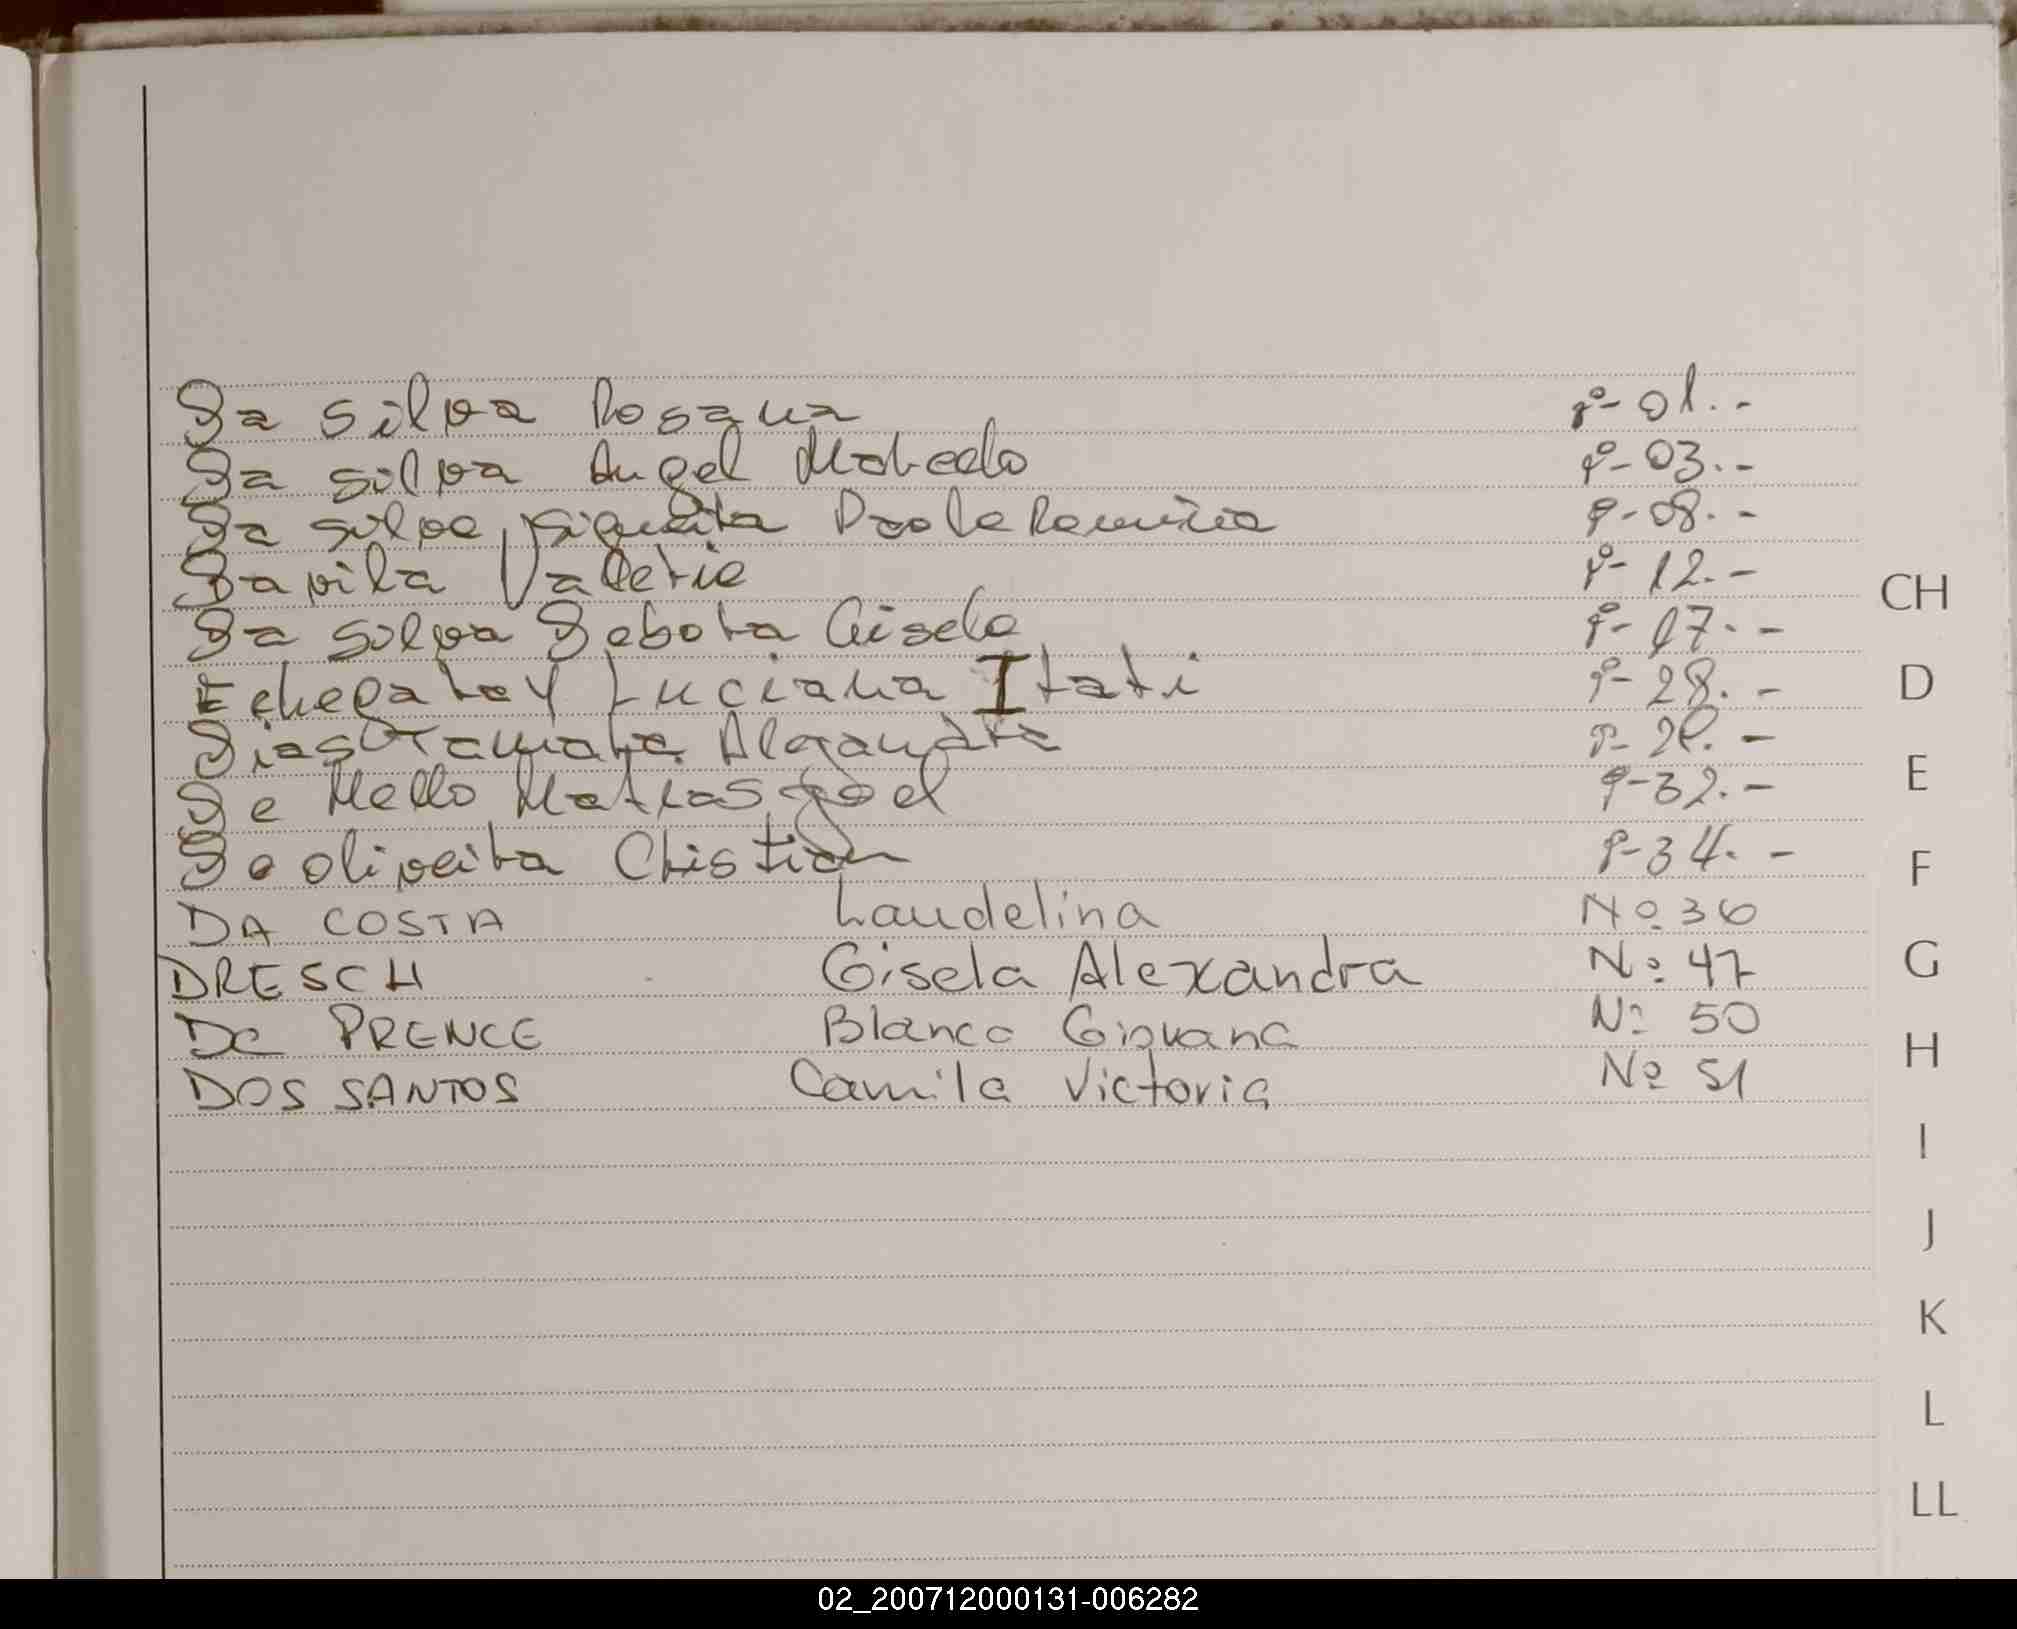 Da Silva Rosana nº- 01.-
Da Silva Angel Marcelo nº- 03.-
Da Silva Siqueira Paola Romina nº- 08.-
Davila Valeria nº- 12.-
Da Silva Debora Gisela nº- 17.-
Echegaray Luciana Itati nº- 28.-
Dias Tamara Alejandra nº- 29.-
De Mello Matias Joel nº- 32.-
De Oliveira Cristian nº- 34.-
DA COSTA Laudelina Nº 36
DRESCH Gisela Alexandra Nº 47
De PRENCE Blanca Giovana Nº 50
DOS SANTOS Camila Victoria Nº 51
CH
D
E
F
G
H
I
J
K
L
LL
02_200712000131-006282